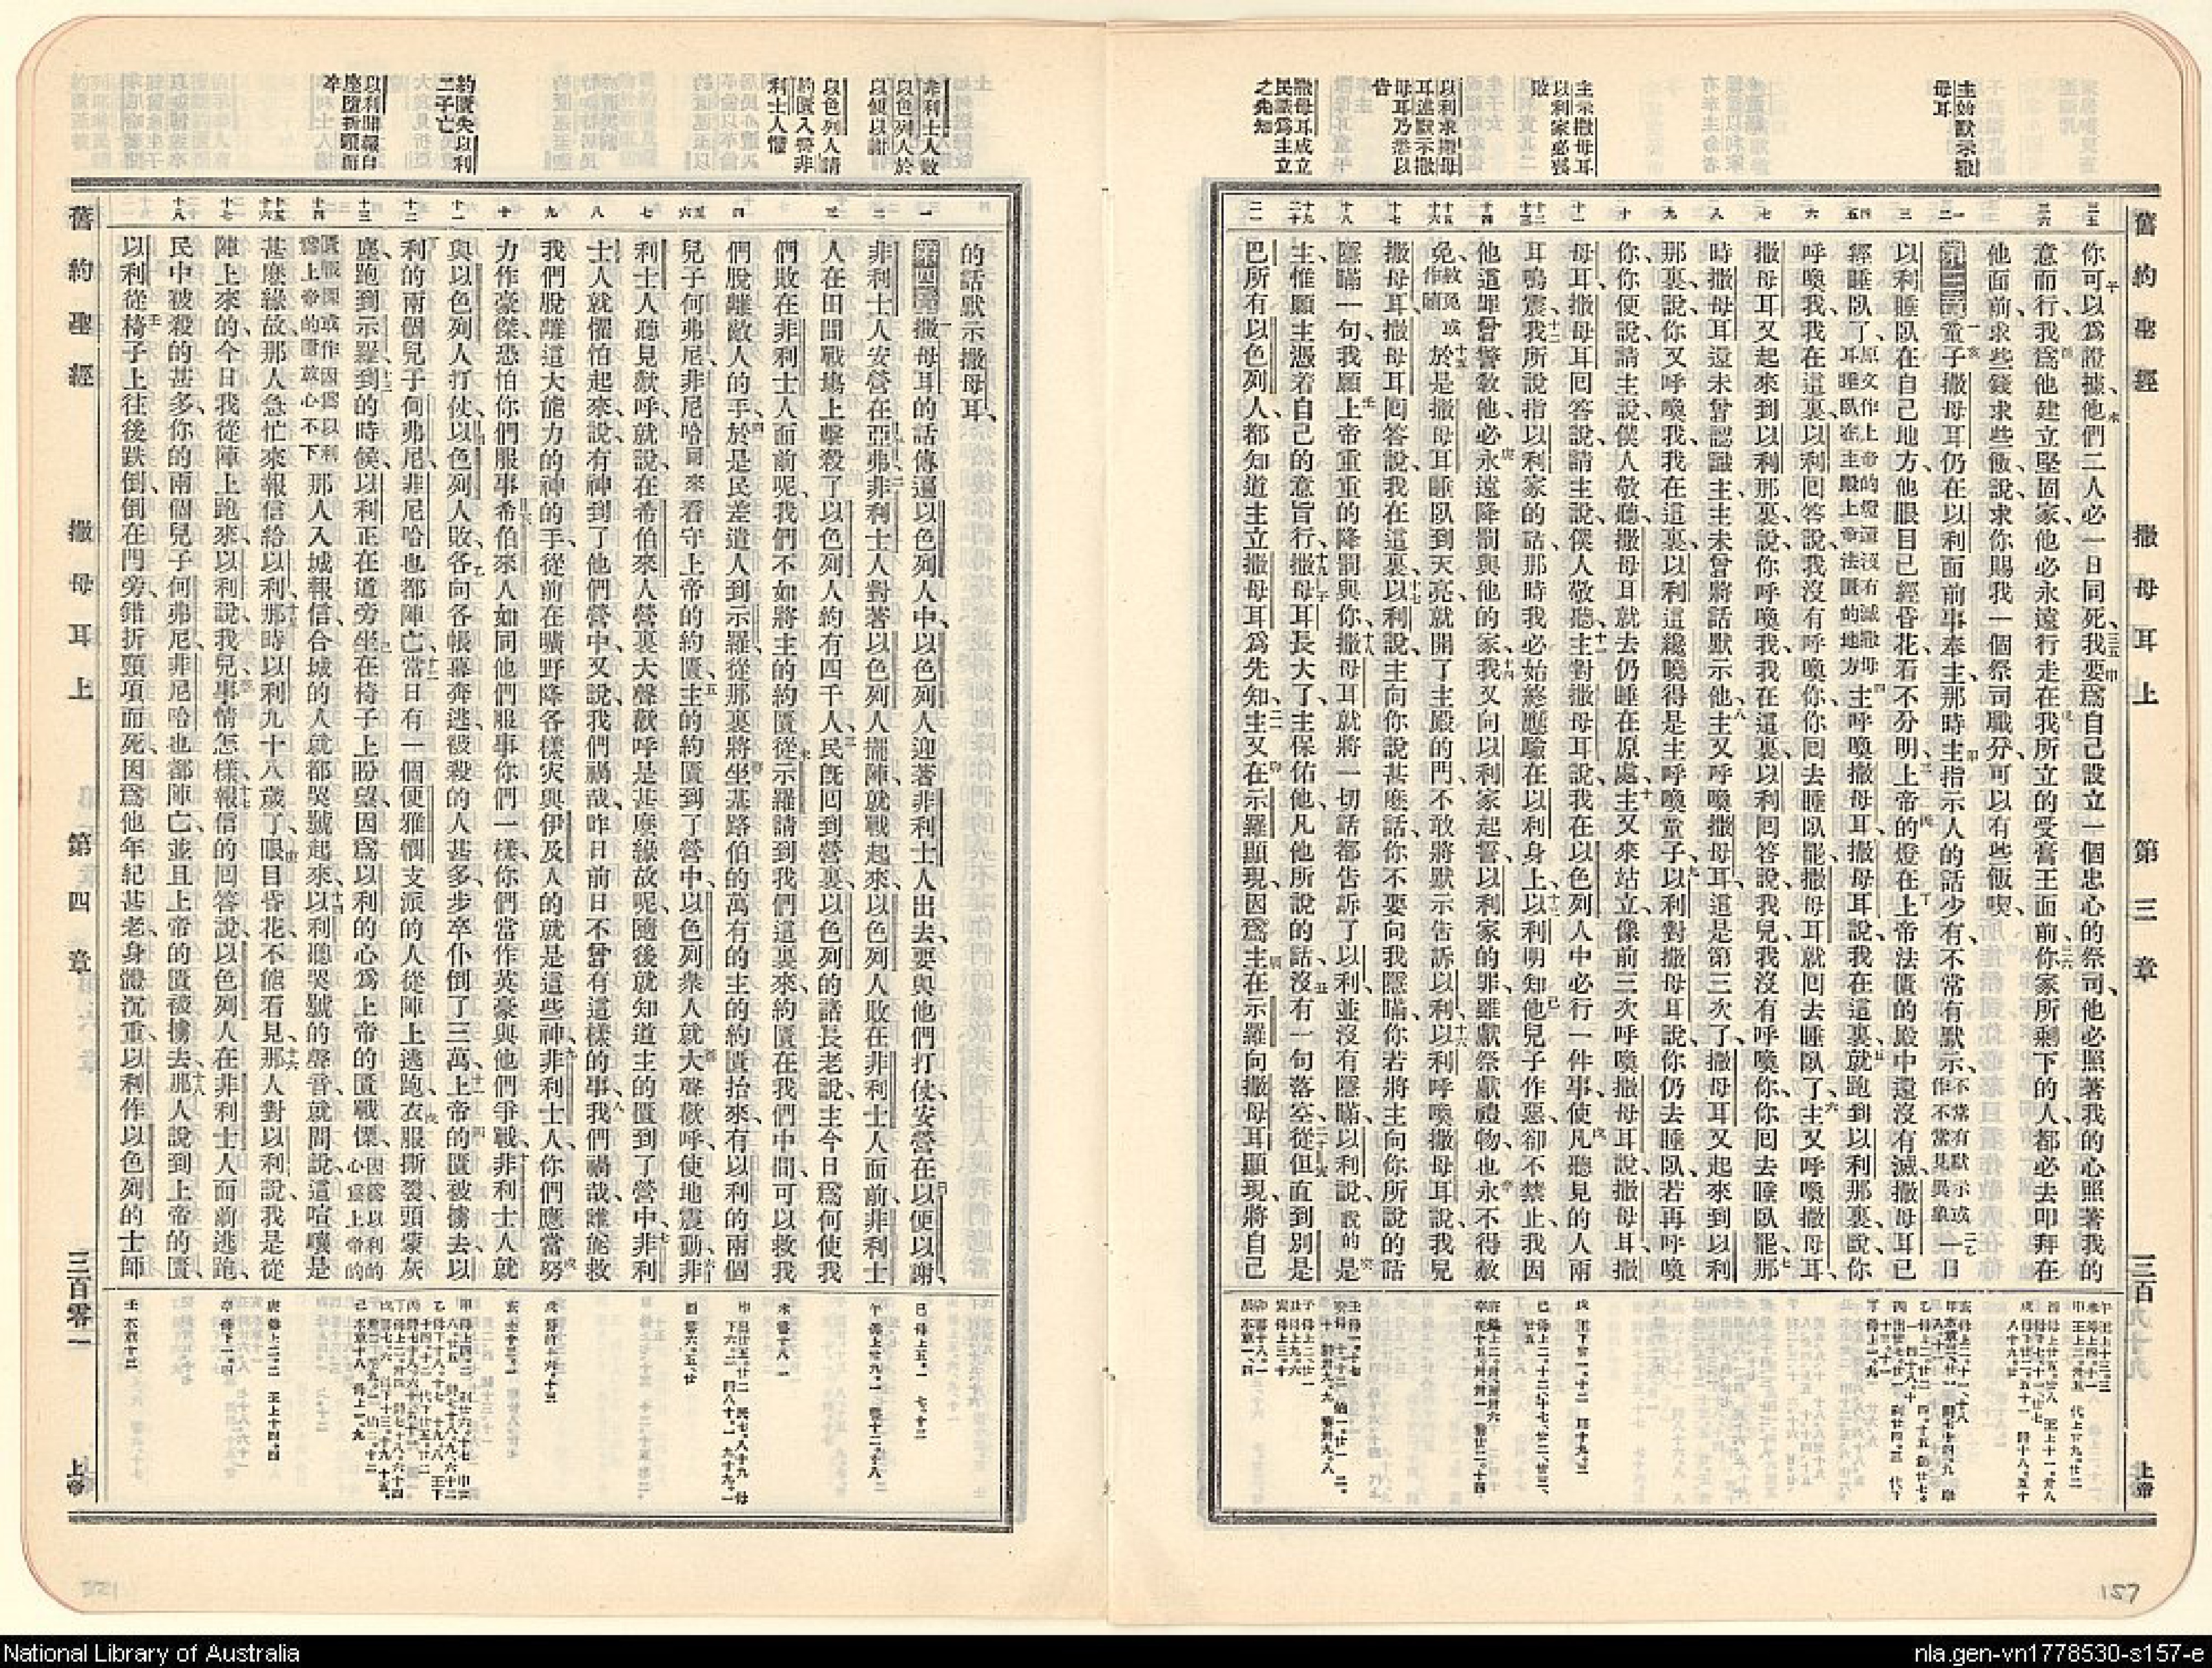 舊約聖經 撒母耳上 第三章 三百 上帝
主始默示撒
母耳
主示撒母耳
以利家必受
敗
以利求撒母
耳述默示撒
母耳乃悉以
告
撒母耳成立
民識爲主立
之先知
你可以爲證據、他們二人必一日同死、我要爲自己設立一個忠心的祭司、他必照著我的心照著我的
意而行、我爲他建立堅固家、他必永遠行走在我所立的受膏王面前、你家所剩下的人都必去叩拜在
他面前、求些錢求些飯、說求你賜我一個祭司職分、可以有些飯喫、
第三章 童子撒母耳仍在以利面前事奉主、那時主指示人的話少有、不常有默示、不常有默示或作不常見異象 一日
以利睡臥在自己地方、他眼目已經昏花、看不分明、上帝的燈在上帝法匱的殿中還沒有滅、撒母耳已
經睡臥了、原文作上帝的燈還沒有滅撒母耳睡臥在主殿上帝法匱的地方 主呼喚撒母耳、撒母耳說、我在這裏、就跑到以利那裏、說、你
呼喚我、我在這裏、以利回答說、我沒有呼喚你、你回去睡臥罷、撒母耳就回去睡臥了、主又呼喚撒母耳、
撒母耳又起來到以利那裏、說、你呼喚我、我在這裏、以利回答說、我兒、我沒有呼喚你、你回去睡臥罷、那
時撒母耳還未曾認識主、主未曾將話默示他、主又呼喚撒母耳、這是第三次了、撒母耳又起來到以利
那裏、說、你又呼喚我、我在這裏、以利這纔曉得是主呼喚童子、以利對撒母耳說、你仍去睡臥、若再呼喚
你、你便說、請主說、僕人敬聽、撒母耳就去仍睡在原處、主又來站立、像前三次呼喚撒母耳說、撒母耳、撒
母耳、撒母耳回答說、請主說、僕人敬聽、主對撒母耳說、我在以色列人中必行一件事、使凡聽見的人兩
耳鳴震、我所說指以利家的話、那時我必始終應驗在以利身上、以利明知他兒子作惡、卻不禁止、我因
他這罪曾警教他、必永遠降罰與他的家、我又向以利家起誓、以利家的罪、雖獻祭獻禮物、也永不得赦
免、赦免或作贖 於是撒母耳睡臥到天亮、就開了主殿的門、不敢將默示告訴以利、以利呼喚撒母耳說、我兒
撒母耳、撒母耳回答說、我在這裏、以利說、主向你說甚麽話、你不要向我隱瞞、你若將主向你所說的話
隱瞞一句、我願上帝重重的降罰與你、撒母耳就將一切話都告訴了以利、並沒有隱瞞、以利說、說的是
主、惟願主憑着自己的意旨行、撒母耳長大了、主保佑他、凡他所說的話、沒有一句落空、從但直到別是
巴、所有以色列人、都知道主立撒母耳爲先知、主又在示羅顯現、因爲主在示羅向撒母耳顯現、將自己
非利士人敗
以色列人於
以便以謝
以色列人請
約匱入營非
利士人懼
約匱失以利
二子亡
以利聞報自
座墮折頸而
卒
的話默示撒母耳、
第四章 撒母耳的話傳遍以色列人中、以色列人迎著非利士人出去、要與他們打仗、安營在以便以謝、
非利士人安營在亞弗、非利士人對著以色列人擺陣、就戰起來、以色列人敗在非利士人面前、非利士
人在田間戰塲上擊殺了以色列人約有四千人、民旣回到營裏、以色列的諸長老說、主今日爲何使我
們敗在非利士人面前呢、我們不如將主的約匱從示羅請到我們這裏來、約匱在我們中間、可以救我
們脫離敵人的手、於是民差遣人到示羅、從那裏將坐基路伯的萬有的主的約匱抬來、有以利的兩個
兒子何弗尼、非尼哈同來看守上帝的約匱、主的約匱到了營中、以色列衆人就大聲歡呼、使地震動、非
利士人聽見歡呼、就說、在希伯來人營裏大聲歡呼、是甚麽緣故呢、隨後就知道主的匱到了營中、非利
士人就懼怕起來、說、有神到了他們營中、又說、我們禍哉、昨日前日不曾有這樣的事、我們禍哉、誰能救
我們脫離這大能力的神的手、從前在曠野降各樣災與伊及人的、就是這些神、非利士人、你們應當努
力作豪傑、恐怕你們服事希伯來人、如同他們服事你們一樣、你們當作英豪、與他們爭戰、非利士人就
與以色列人打仗、以色列人敗、各向各帳幕奔逃、被殺的人甚多、步卒仆倒了三萬、上帝的匱被擄去、以
利的兩個兒子何弗尼、非尼哈也都陣亡、當日有一個便雅憫支派的人、從陣上逃跑、衣服撕裂、頭蒙灰
塵、跑到示羅、到的時候、以利正在道旁坐在椅子上盼望、因爲以利的心、爲上帝的匱戰慄、因爲以利的心爲上帝的
匱戰慄或作因爲以利爲上帝的匱放心不下 那人入城報信、合城的人就都哭號起來、以利聽哭號的聲音、就問說、這喧嚷是
甚麽緣故、那人急忙來報信給以利、那時以利九十八歲了、眼目昏花、不能看見、那人對以利說、我是從
陣上來的、今日我從陣上跑來、以利說、我兒、事情怎樣、報信的回答說、以色列人在非利士人面前逃跑、
民中被殺的甚多、你的兩個兒子何弗尼、非尼哈也都陣亡、並且上帝的匱被擄去、那人說到上帝的匱、
以利從椅子上往後跌倒、倒在門旁、錯折頸項而死、因爲他年紀甚老、身體沉重、以利作以色列的士師
舊約聖經 撒母耳上 第四章 三百零一 上帝
157
National Library of Australia
nla.gen-vn1778530-s157-e